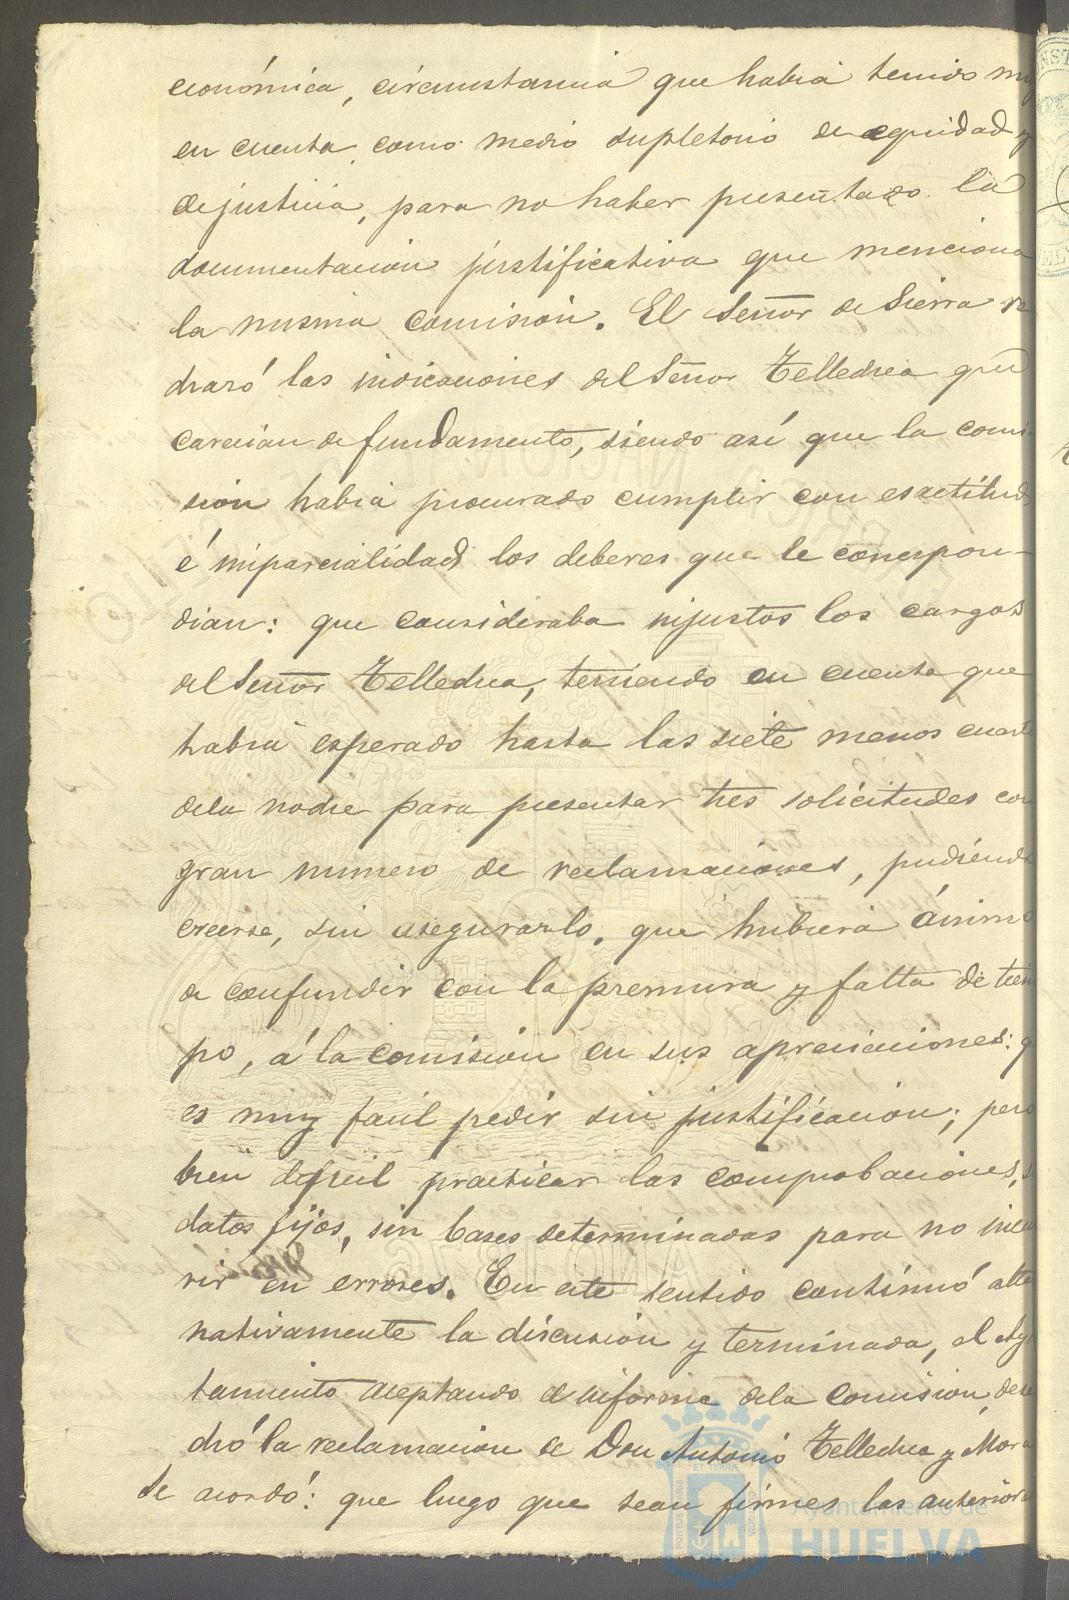 económica, circunstancia que habia tenido muy
en cuenta como medio supletorio de equidad y
de justicia, para no haber presentado la
documentación justificativa que menciona
la misma comisión. El Señor de Sierra re
chazó las indicaciones del Señor Tellechea que
carecian de fundamento, siendo así que la comi-
sión habia procurado cumplir con esactitud
é imparcialidad los deberes que le correspon-
dian: que consideraba injustos los cargos
del Señor Tellechea, teniendo en cuenta que
habia esperado hasta las siete menos cuarto
dela noche para presentar tres solicitudes con
gran numero de reclamaciones, pudiendo
creerse, sin asegurarlo, que hubiera ánimo
de confundir con la premura y falta de tiem
po, á la comisión en sus apreciaciones: q
es muy facil pedir sin justificación; pero
bien dificil practicar las comprobaciones, s
datos fijos, sin bases determinadas para no incu
rir en errores. En este sentido continuó alte
nativamente la discusión y terminada, el Ayu
tamiento aceptando el informe dela comision, dese
chó la reclamación de Don Antonio Tellechea y Mora
Se acordó: que luego que sean firmes las anterior
AÑO 1916
Ayuntamiento de
HUELVA